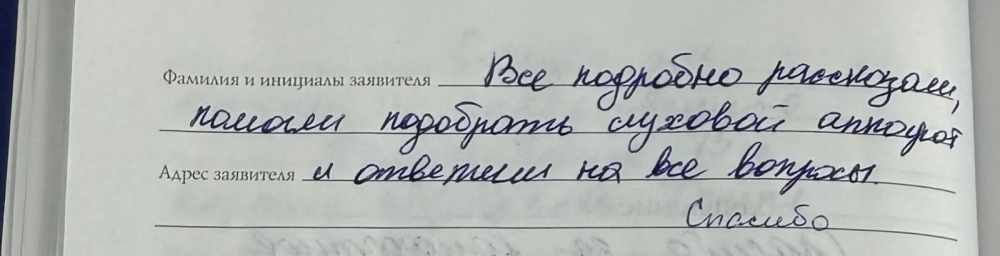 Фамилия и инициалы заявителя Все подробно рассказали,
помогли подобрать слуховой аппарат
Адрес заявителя и ответили на все вопросы.
Спасибо